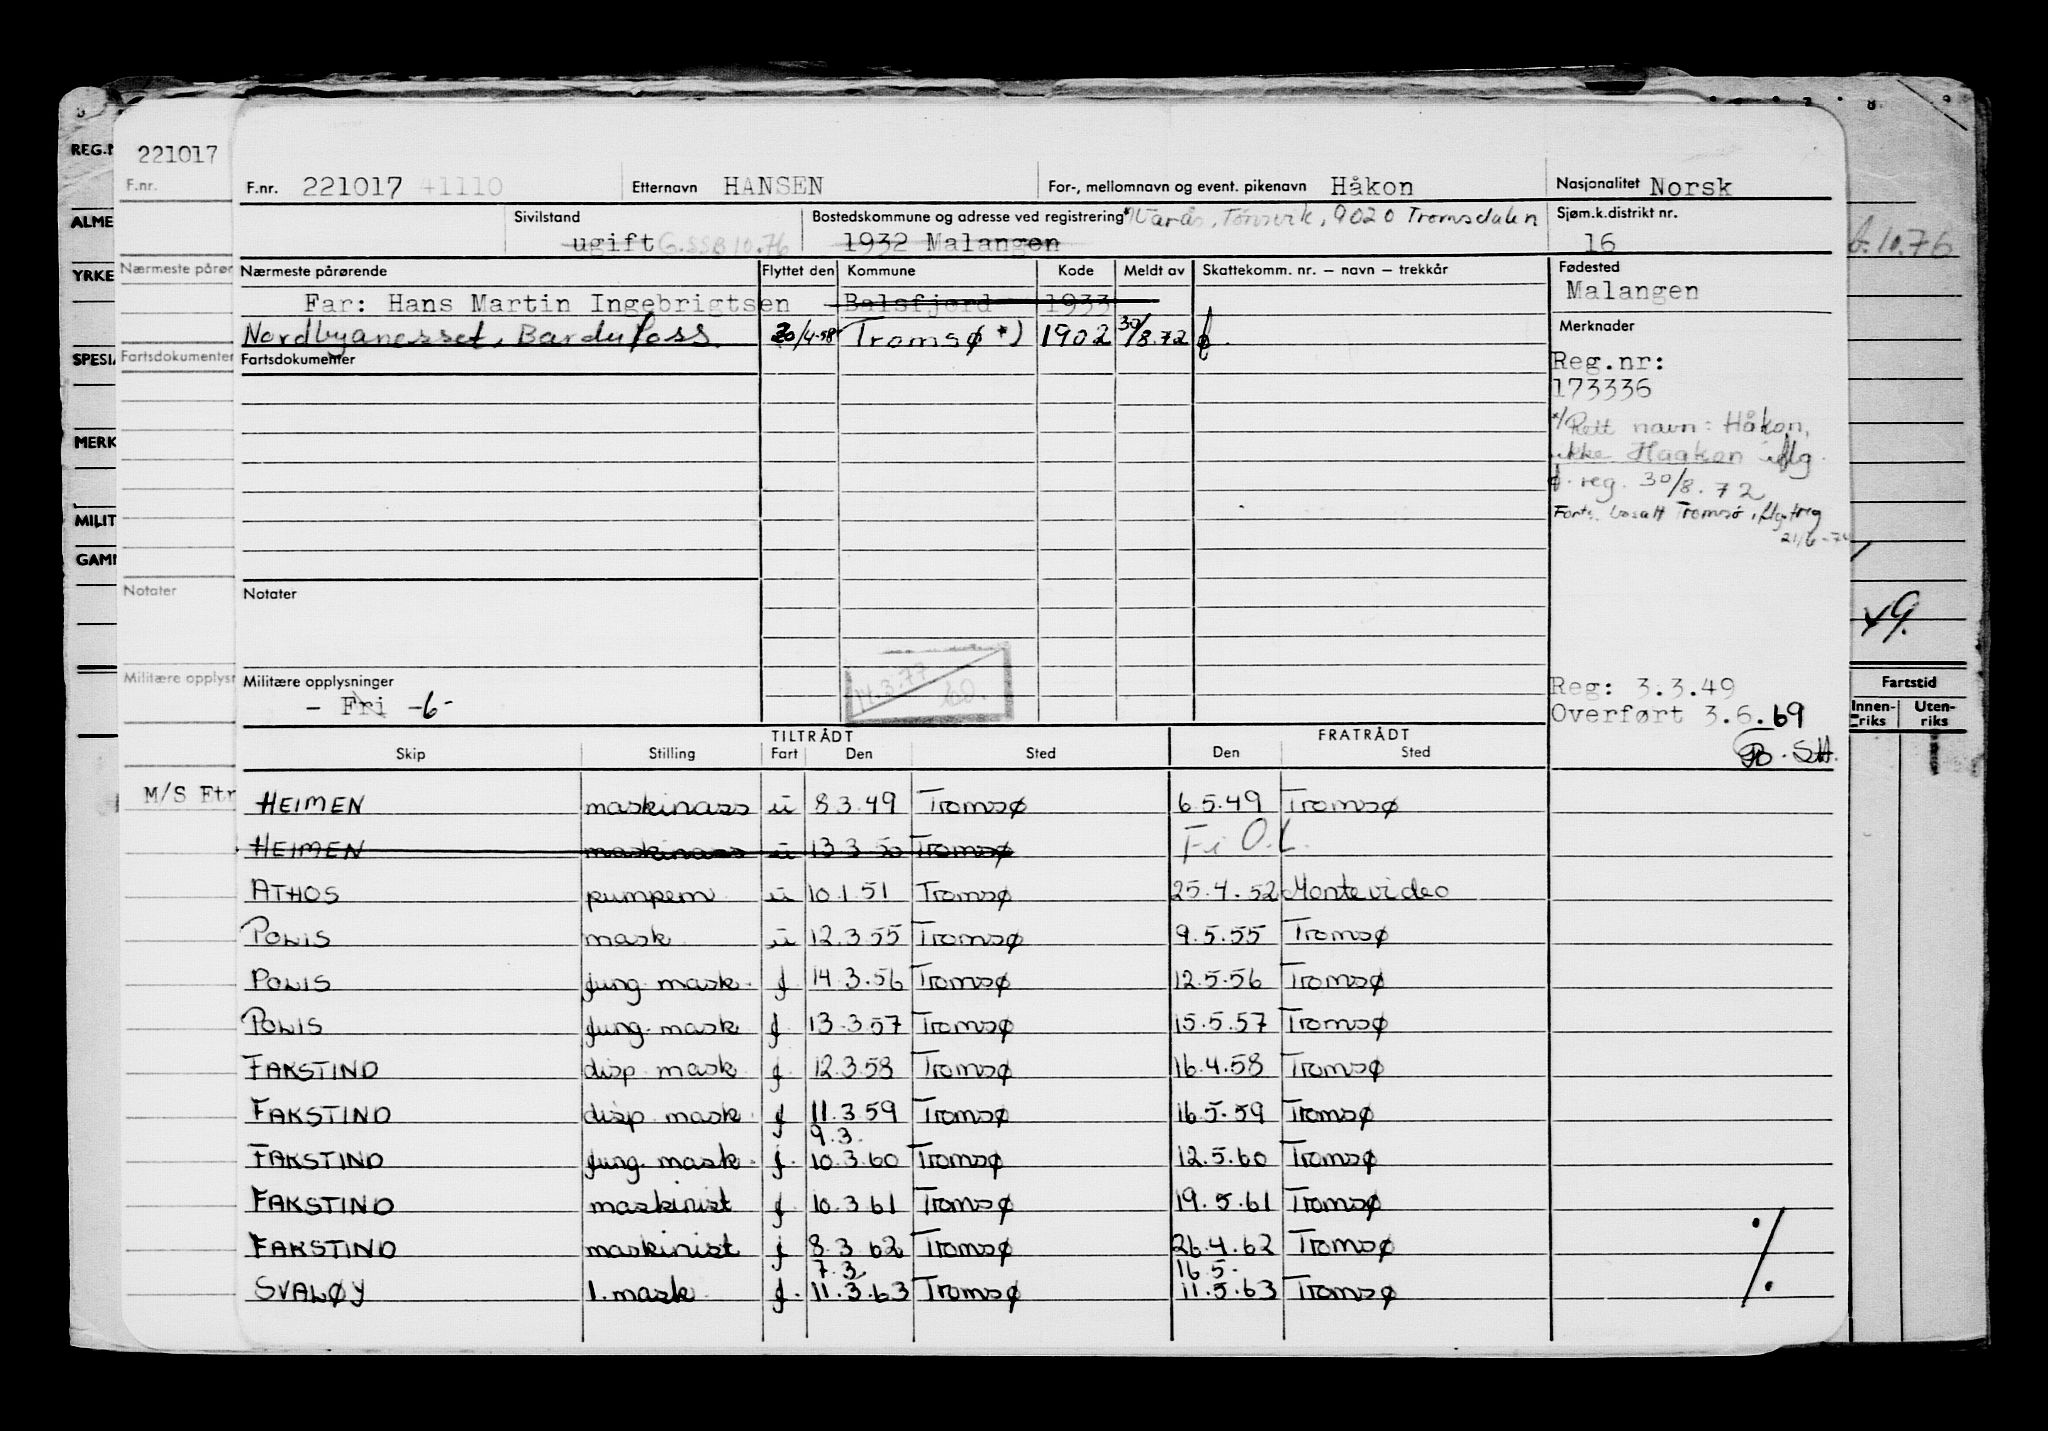 221017
F.nr.
F.nr. 221017 41110 Etternavn HANSEN For-, mellomnavn og event. pikenavn Håkon Nasjonalitet Norsk
Sivilstand Bostedskommune og adresse ved registrering Tønsvik, 9020 Tromsdalen Sjøm.k.distrikt nr.
ugift G.SSB 10.76 1932 Malangen 16
6.10.76
REG.N
ALME
YRKE
SPESIA
MERK
MILIT
GAMM
Nærmeste pårør
Fartsdokumenter
Notater
Militære opplysn
M/S Etr
Nærmeste pårørende Flyttet den Kommune Kode Meldt av Skattekomm. nr. – navn – trekkår Fødested
Far: Hans Martin Ingebrigtsen Balsfjord 1933 Malangen
Nordbyanesset, Bardufoss. 20/4-58 Tromsø *) 1902 30/8.72 f.
Fartsdokumenter
Merknader
Reg.nr:
173336
*/ Rett navn: Håkon,
ikke Haakon iflg.
f. reg. 30/8.72
Forts. bosatt Tromsø, iflg. freg
21/6-74
Notater
Militære opplysninger
- Fri -6-
14.3.77
Reg: 3.3.49
Overført 3.6.69
49.
Fartstid
Innen-riks Uten-riks
TILTRÅDT FRATRÅDT
Skip Stilling Fart Den Sted Den Sted
HEIMEN maskinass u 8.3.49 Tromsø 6.5.49 Tromsø
HEIMEN maskinass u 13.3.50 Tromsø Fi O.L.
ATHOS pumpem u 10.1.51 Tromsø 25.4.52 Montevideo
POLIS mask u 12.3.55 Tromsø 9.5.55 Tromsø
POLIS fung. mask. f. 14.3.56 Tromsø 12.5.56 Tromsø
POLIS fung. mask f. 13.3.57 Tromsø 15.5.57 Tromsø
FAKSTIND disp mask. f. 12.3.58 Tromsø 16.4.58 Tromsø
FAKSTIND disp. mask. f 11.3.59 Tromsø 16.5.59 Tromsø
9.3.
FAKSTIND fung. mask. f. 10.3.60 Tromsø 12.5.60 Tromsø
FAKSTIND maskinist f. 10.3.61 Tromsø 19.5.61 Tromsø
FAKSTIND maskinist f 8.3.62 Tromsø 26.4.62 Tromsø
7.3. 16.5.
SVALØY 1. mask. f. 11.3.63 Tromsø 11.5.63 Tromsø
./.